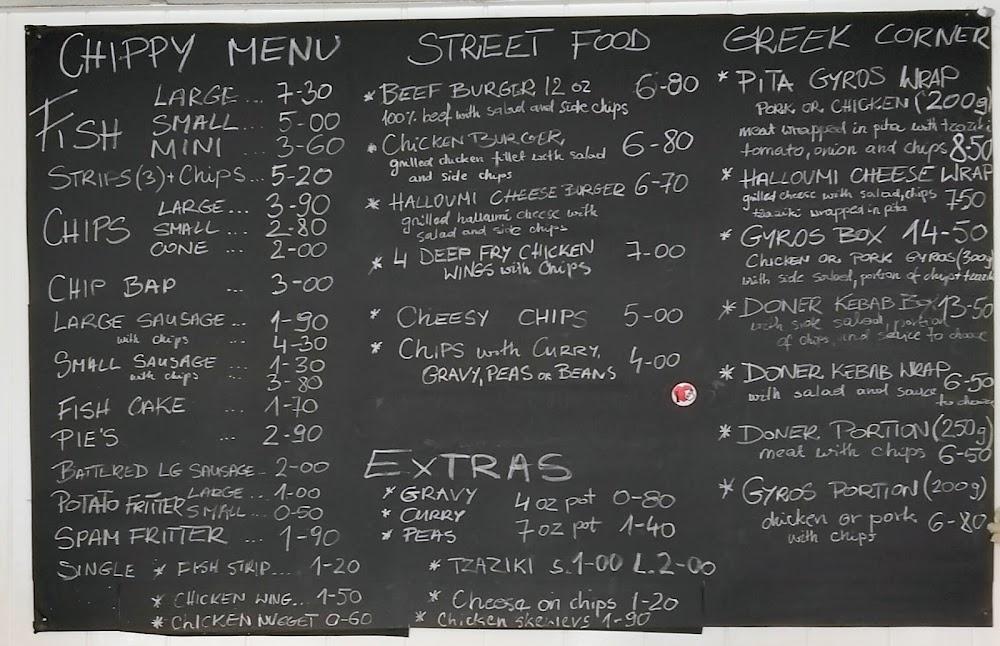 CHIPPY MENU
FISH
LARGE ... 7-30
SMALL ... 5-00
MINI ... 3-60
STRIPS (3) + Chips ... 5-20
CHIPS
LARGE ... 3-90
SMALL ... 2-80
CONE ... 2-00
CHIP BAP ... 3-00
LARGE SAUSAGE ... 1-90
with chips ... 4-30
SMALL SAUSAGE ... 1-30
with chips ... 3-80
FISH CAKE ... 1-70
PIE'S ... 2-90
BATTERED LG SAUSAGE - 2-00
POTATO FRITTER LARGE ... 1-00
SMALL ... 0-50
SPAM FRITTER ... 1-90
SINGLE * FISH STRIP.... 1-20
* CHICKEN WING... 1-50
* CHICKEN NUGGET 0-60
STREET FOOD
* BEEF BURGER 12 oz 6-80
100% beef with salad and side chips
* CHICKEN BURGER 6-80
grilled chicken fillet with salad
and side chips
* HALLOUMI CHEESE BURGER 6-70
grilled halloumi cheese with
salad and side chips
* 4 DEEP FRY CHICKEN 7-00
WINGS with Chips
* CHEESY CHIPS 5-00
* CHIPS with CURRY, 4-00
GRAVY, PEAS OR BEANS
EXTRAS
* GRAVY 4 oz pot 0-80
* CURRY
* PEAS 7 oz pot 1-40
* TZAZIKI S.1-00 L.2-00
* Cheese on chips 1-20
* Chicken skewers 1-90
GREEK CORNER
* PITA GYROS WRAP
PORK OR CHICKEN (200g)
meat wrapped in pita with tzaziki
tomato, onion and chips 8-50
* HALLOUMI CHEESE WRAP
grilled cheese with salad, chips 7-50
tzaziki wrapped in pita
* GYROS BOX 14-50
CHICKEN OR PORK GYROS (300g
with side salad, portion of chips + tzaziki
* DONER KEBAB BOX 13-50
with side salad, portion
of chips, and sauce to choose
* DONER KEBAB WRAP 6-50
with salad and sauce
* DONER PORTION (250g)
meat with chips 6-50
* GYROS PORTION (200g)
chicken or pork 6-80
with chips